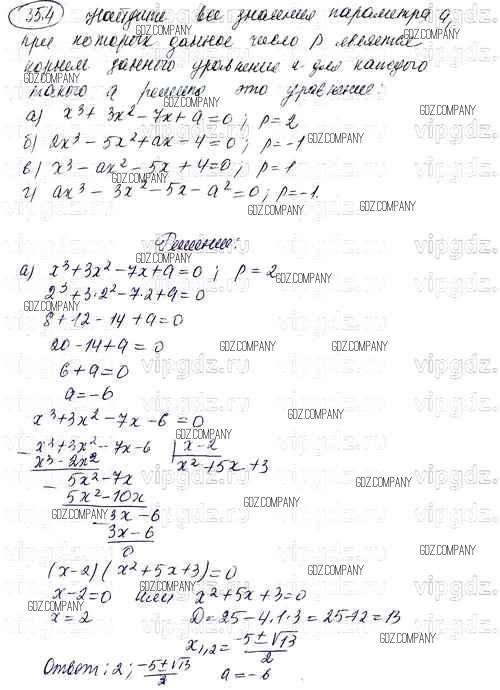 35.4 Найдите все значения параметра a,
при которых данное число p является
корнем данного уравнения и для каждого
такого a решите это уравнение:
а) x³ + 3x² − 7x + a = 0; p = 2
б) 2x³ − 5x² + ax − 4 = 0; p = −1
в) x³ − ax² − 5x + 4 = 0; p = 1
г) ax³ − 3x² − 5x − a² = 0; p = −1.
Решение:
а) x³ + 3x² − 7x + a = 0; p = 2
2³ + 3·2² − 7·2 + a = 0
8 + 12 − 14 + a = 0
20 − 14 + a = 0
6 + a = 0
a = −6
x³ + 3x² − 7x − 6 = 0
− x³ + 3x² − 7x − 6 | x − 2
x³ − 2x² x² + 5x + 3
− 5x² − 7x
5x² − 10x
− 3x − 6
3x − 6
0
(x − 2)(x² + 5x + 3) = 0
x − 2 = 0 или x² + 5x + 3 = 0
x = 2 D = 25 − 4·1·3 = 25 − 12 = 13
x₁,₂ = (−5 ± √13)/2
Ответ: 2; (−5 ± √13)/2 a = −6
GDZ.COMPANY
vipgdz.ru